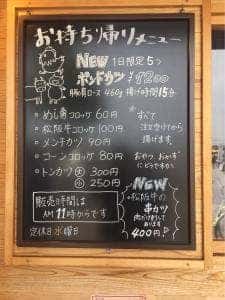 お持ち帰りメニュー
NEW 1日限定5つ
ポンドカツ ¥1200
豚肩ロース 450g 揚げ時間15分
めし富コロッケ 60円
松阪牛コロッケ 100円
メンチカツ 90円
コーンコロッケ 80円
トンカツ 大 300円
小 250円
*すべて
注文受けてから
揚げます
おやつ、おかず
にどうですか?
販売時間は
AM11時からです
定休日 水曜日
NEW
松阪牛の
串カツ
あります
400円